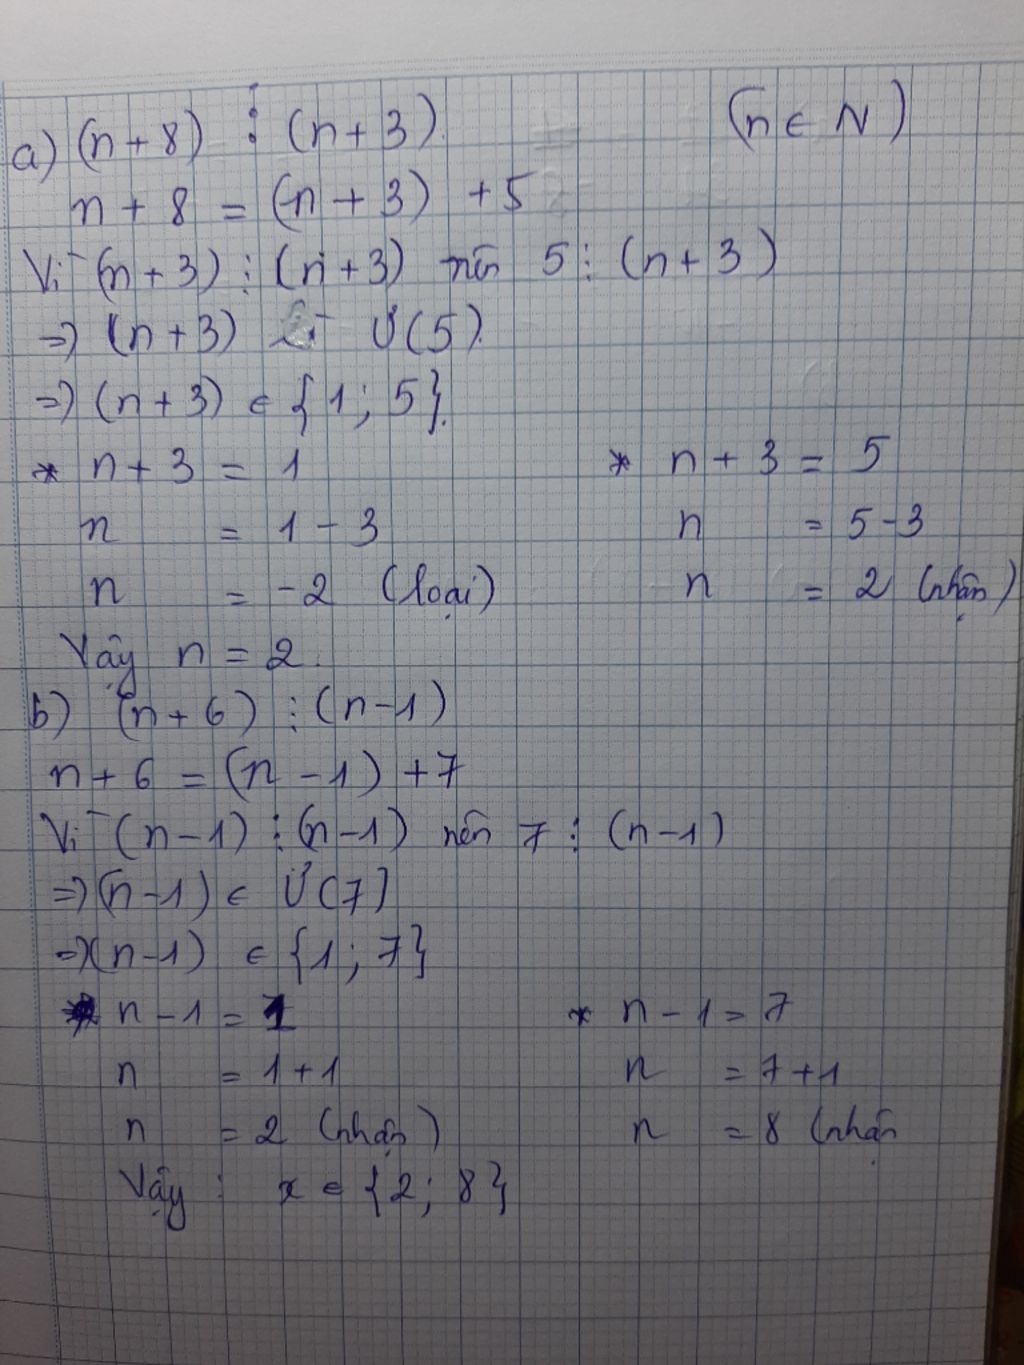 a) (n+8) ⋮ (n+3) (n ∈ N)
n + 8 = (n + 3) + 5
Vì (n+3) ⋮ (n+3) nên 5 ⋮ (n+3)
=> (n+3) Ư(5).
=> (n+3) ∈ {1; 5}.
* n + 3 = 1 * n + 3 = 5
n = 1 - 3 n = 5 - 3
n = -2 (loại) n = 2 (nhận)
Vậy n = 2.
b) (n+6) ⋮ (n-1)
n + 6 = (n - 1) + 7
Vì (n-1) ⋮ (n-1) nên 7 ⋮ (n-1)
=> (n-1) ∈ Ư(7)
=> (n-1) ∈ {1; 7}
* n - 1 = 1 * n - 1 = 7
n = 1 + 1 n = 7 + 1
n = 2 (nhận) n = 8 (nhận
Vậy : x ∈ {2; 8}